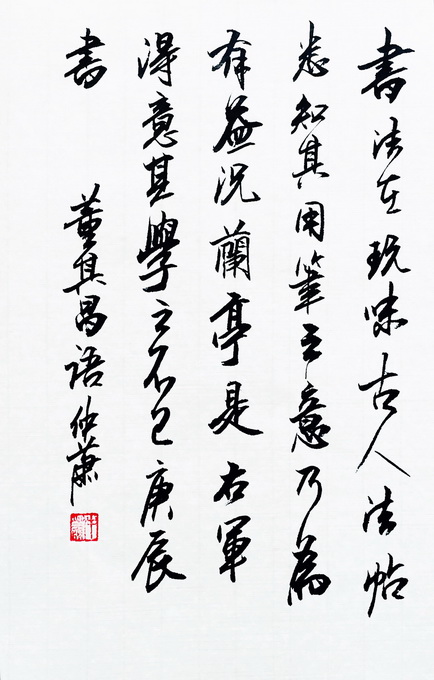 書法在玩味古人法帖
悉知其用筆之意乃為
有益況蘭亭是右軍
得意其學之不已庚辰
書
董其昌語仲蕭